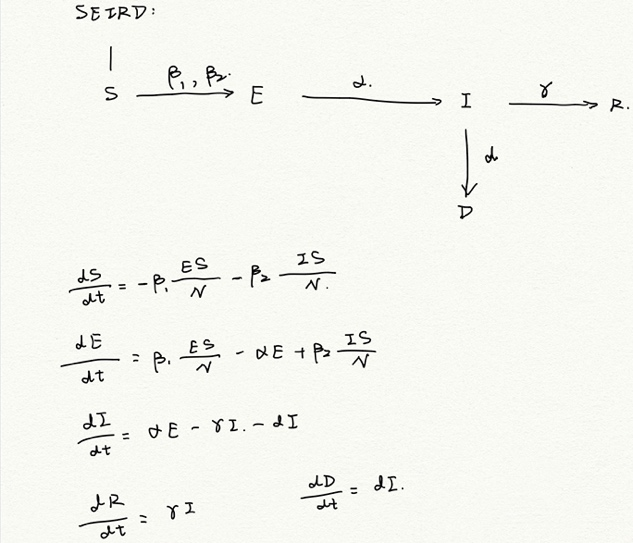 SEIRD:
S β₁, β₂. E α. I γ R.
d
D
dS/dt = -β₁ ES/N - β₂ IS/N.
dE/dt = β₁ ES/N - αE + β₂ IS/N
dI/dt = αE - γI. - dI
dR/dt = γI dD/dt = dI.